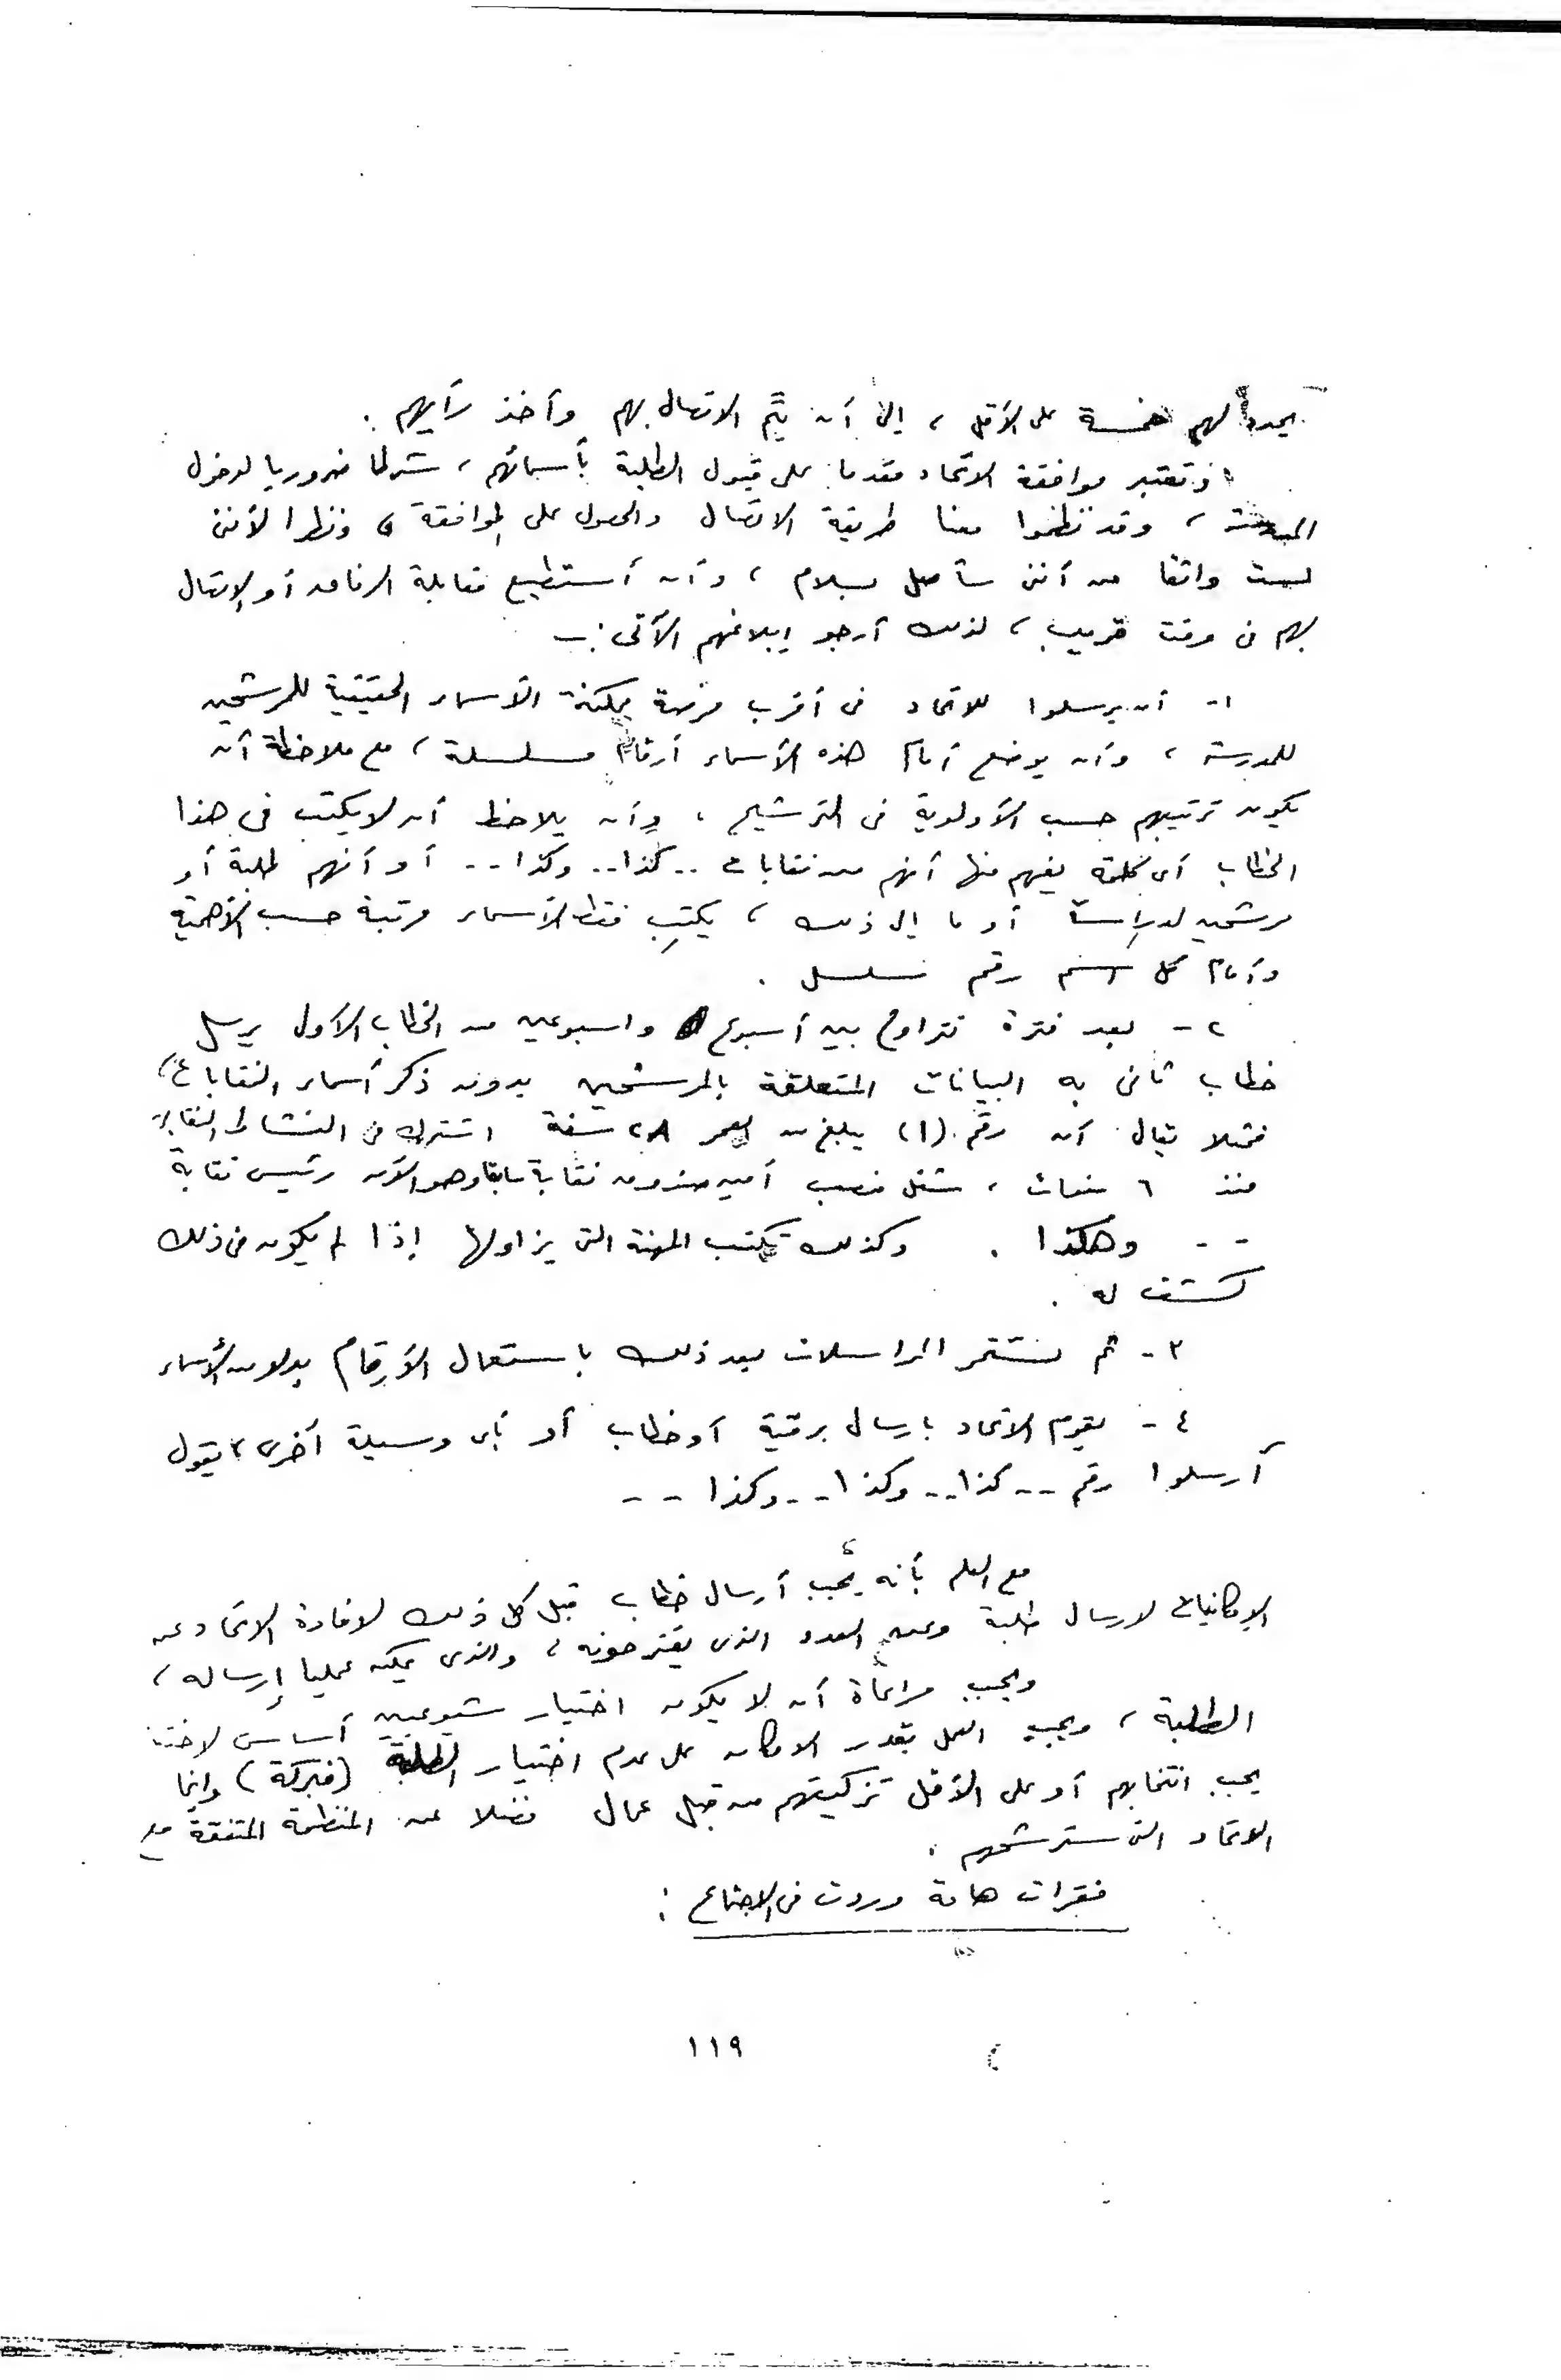 يحددوا لهم خمسة على الأقل ، إلى أن يتم الاتصال بهم وأخذ رأيهم .
وتعتبر موافقة الاتحاد مقدما على قبول الطلبة بأسمائهم ، شرطا ضروريا لدخول
المدرسة ، وقد نظموا معنا طريقة الاتصال والحصول على الموافقة ، ونظرا لأننى
لست واثقا من أننى سأصل بسلام ، وأن أستطيع مقابلة الرفاق أو الاتصال
بهم فى وقت قريب ، لذلك أرجو إبلاغهم الآتى :-
١- أن يرسلوا للاتحاد فى أقرب فرصة ممكنة الأسماء الحقيقية للمرشحين
للمدرسة ، وأن يوضع أمام هذه الأسماء أرقام مسلسلة ، مع ملاحظة أن
يكون ترتيبهم حسب الأولوية فى الترشيح ، وأن يلاحظ أن لا يكتب فى هذا
الخطاب أى كلمة يفهم منها أنهم من نقابات .. كذا .. وكذا .. أو أنهم طلبة أو
مرشحين لدراسة أو ما إلى ذلك ، يكتب فقط الأسماء مرتبة حسب الأهمية
وأمام كل اسم رقم مسلسل .
٢- بعد فترة تتراوح بين أسبوع واسبوعين من الخطاب الأول يرسل
خطاب ثانى به البيانات المتعلقة بالمرشحين بدون ذكر أسماء النقابات ،
فمثلا يقال أن رقم (١) يبلغ من العمر ٢٨ سنة اشترك فى النشاط النقابى
منذ ٦ سنوات ، شغل منصب أمين صندوق نقابة سابقا وهو الآن رئيس نقابة
.. وهكذا . وكذلك تكتب المهنة التى يزاولها إذا لم يكون فى ذلك
كشف له .
٣- ثم تستمر المراسلات بعد ذلك باستعمال الأرقام بدلا من الأسماء
٤- يقوم الاتحاد بارسال برقية أو خطاب أو بأى وسيلة أخرى ، يقول
أرسلوا رقم .. كذا .. وكذا .. وكذا ..
مع العلم بأنه يجب أرسال خطاب قبل كل ذلك لافادة الاتحاد عن
الإمكانيات لارسال طلبة وعن العدد الذى يقترحونه ، والذى يمكن عمليا إرساله ،
ويجب مراعاة أن لا يكون اختيار شيوعيين أساس
الطلبة ، ويجب العمل بقدر الامكان على عدم اختيار الطلبة (فبركة) وإنما
يجب انتخابهم أو على الأقل تزكيتهم من قبل عمال فضلا عن المنظمة المتفقة مع
الاتحاد التى سترشحهم .
فقرات هامة وردت فى الاجتماع :
١١٩